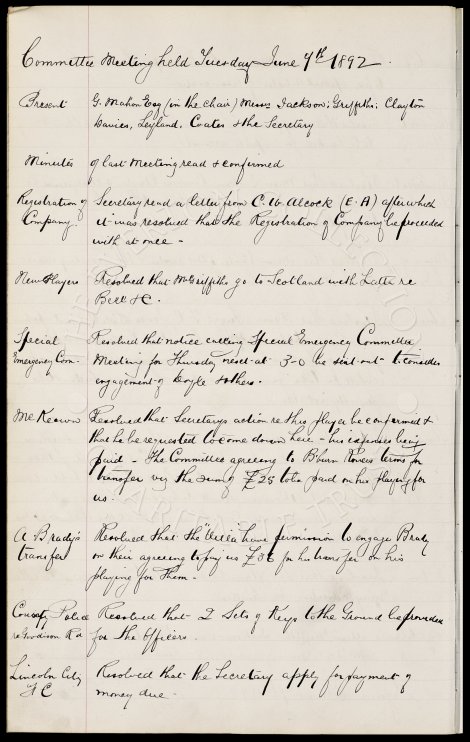 Committee Meeting held Tuesday June 7th 1892.
Present G. Mahon Esq (in the chair) Messrs Jackson, Griffiths, Clayton
Davies, Leyland, Coates & the Secretary
Minutes of last Meeting read & confirmed
Registration of Secretary read a letter from C. W. Alcock (E.A) after which
Company. it was resolved that the Registration of Company be proceeded
with at once -
New Players Resolved that Mr Griffiths go to Scotland with Latta re
Bell &c.
Special Resolved that notice calling Special Emergency Committee
Emergency Com. Meeting for Thursday next at 3-0 be sent out to consider
engagement of Doyle & others.
McKeown Resolved that Secretarys action re this player be confirmed &
that he be requested to come down here - his expenses being
paid - The Committee agreeing to B'burn Rovers terms for
transfer viz the sum of £25 to be paid on his playing for
us.
A Brady's Resolved that the "Celtic" have permission to engage Brady
transfer on their agreeing to pay us £36 for his transfer on his
playing for them -
County Police Resolved that 2 Sets of Keys to the Ground be provided
re Goodison Rd for the Officers
Lincoln City Resolved that the Secretary apply for payment of
FC money due -